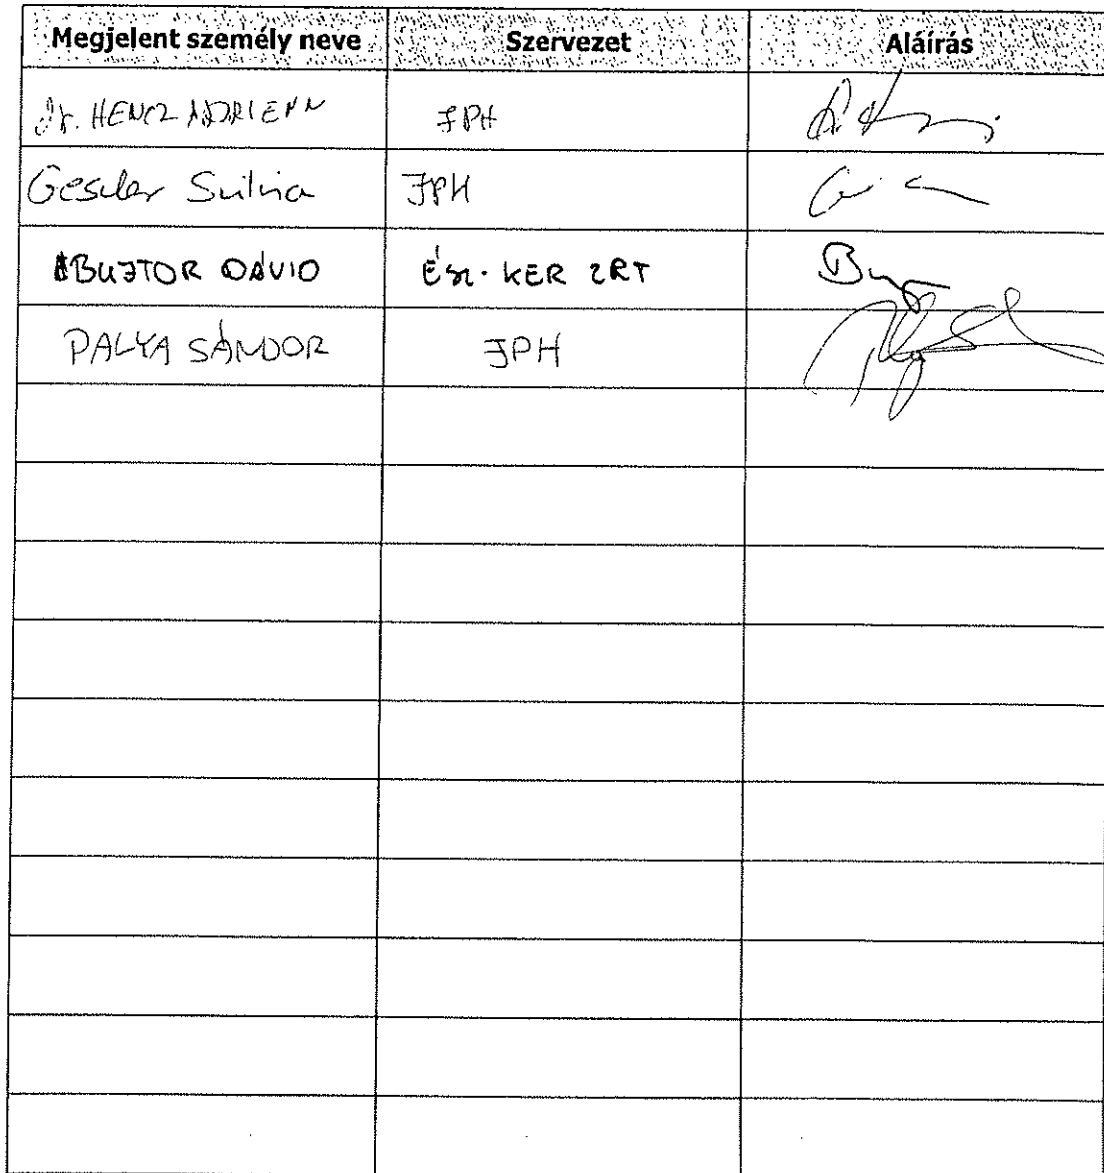 Megjelent személy neve Szervezet Aláírás
Dr. HENCZ ADRIENN JPH
Gessler Szilvia JPH
BUJTOR DÁVID ÉSZ-KER ZRT
PALYA SÁNDOR JPH